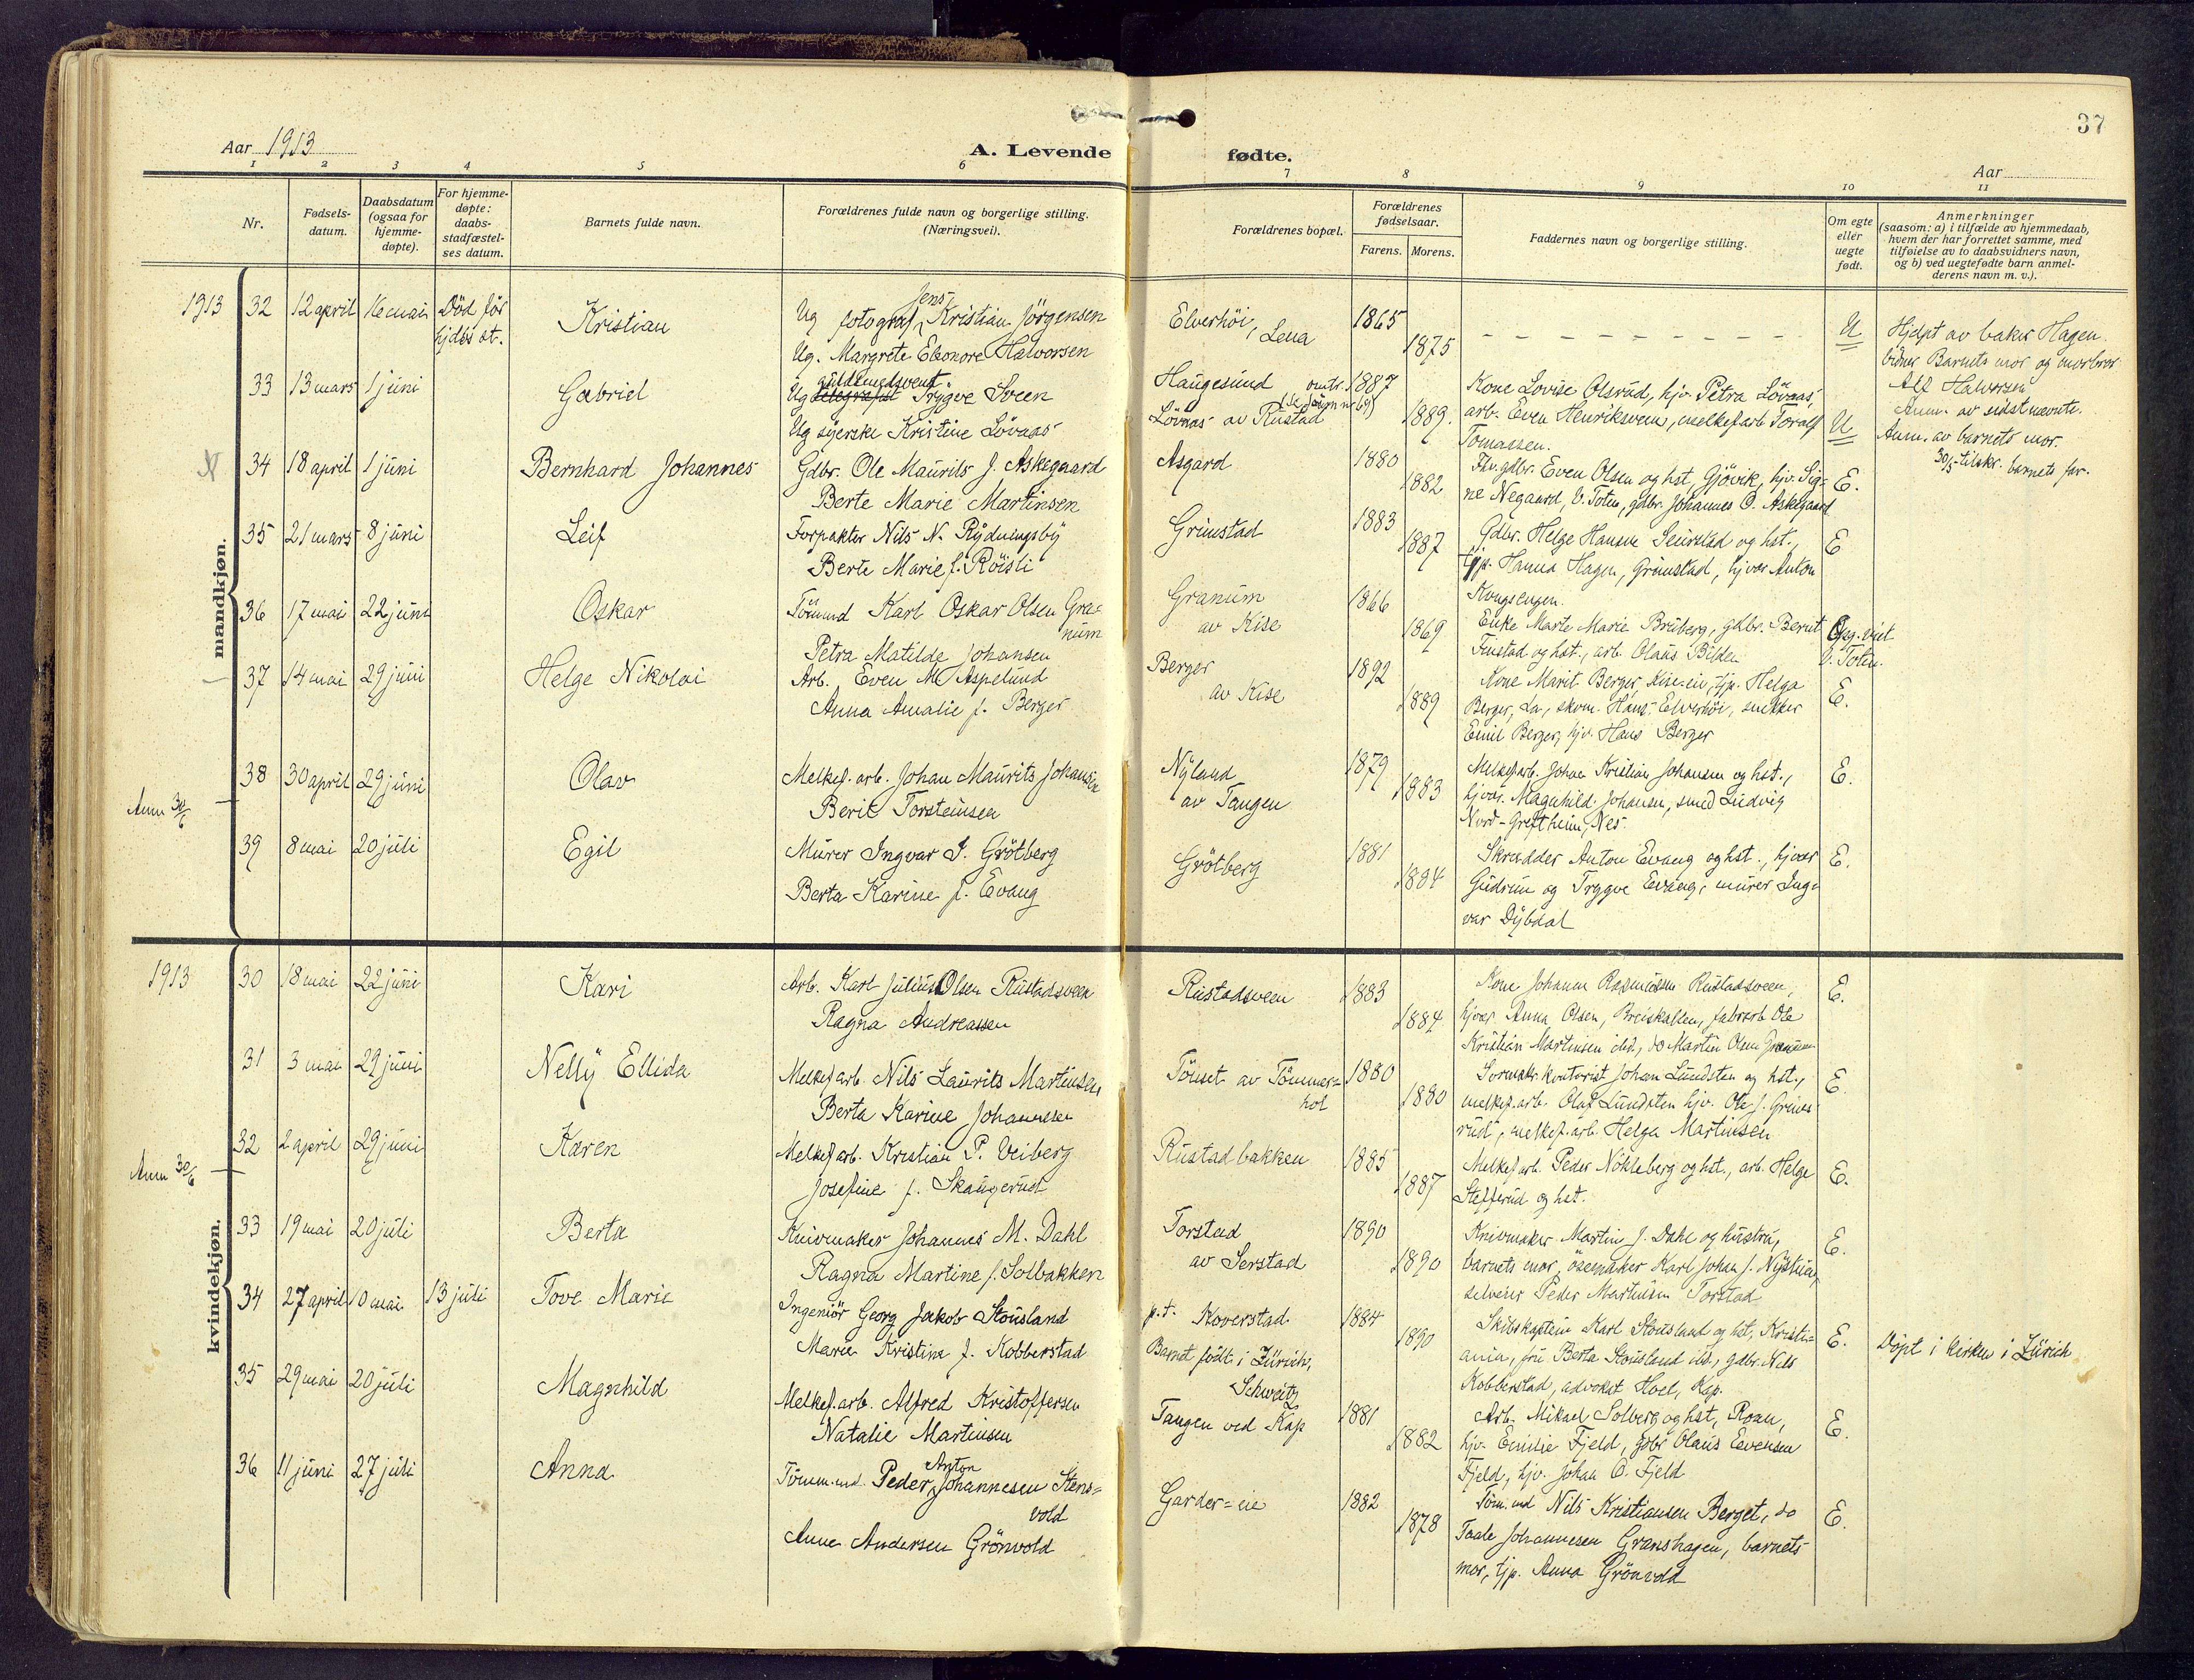 37
Aar 1913
A. Levende fødte.
Aar
1 2 3 4 5 6 7 8 9 10 11
Nr.
Fødsels-
datum.
Daabsdatum
(ogsaa for
hjemme-
døpte).
For hjemme-
døpte:
daabs-
stadfæstel-
ses datum.
Barnets fulde navn.
Forældrenes fulde navn og borgerlige stilling.
(Næringsvei).
Forældrenes bopæl.
Forældrenes
fødselsaar.
Farens. Morens.
Faddernes navn og borgerlige stilling.
Om egte
eller
uegte
født.
Anmerkninger
(saasom: a) i tilfælde av hjemmedaab,
hvem der har forrettet samme, med
tilføielse av to daabsvidners navn,
og b) ved uegtefødte barn anmel-
derens navn m. v.).
mandkjøn.
1913 32 12 april 16 mai Død før Kristian Ug fotograf Jens Kristian Jörgensen Elverhöi, Lena 1865 U Hjdpt av baker Hagen.
hjdbs st. Ug. Margrete Eleonore Halvorsen 1875 Vidner Barnets mor og morbror
Alf Halvorsen
Anm. av sidstnævnte.
33 13 mars 1 juni Gabriel Ug guldsmedsvent Trygve Sveen Haugesund 1887 Kone Lovise Olsrud, hjv. Petra Lövaas,
Ug syerske Kristine Lövaas Lövaas av Rustad 1889. arb. Even Henriksveen, melkef.arb Toralf U Anm. av barnets mor.
Tomassen. 30/5 tilskr. barnets far.
34 18 april 1 juni Bernhard Johannes Gdbr. Ole Maurits J. Askegaard Asgard 1880 Fhv. gdbr. Even Olsen og hst, Gjövik, hjv. Sig-
Berte Marie Martinsen 1882 ne Negaard, V. Toten, gdbr. Johannes O. Askegaard E.
35 21 mars 8 juni Leif Forpakter Nils N. Rydningsby Grimstad 1883 Gdbr. Helge Hansen Seirstad og hst., E
Berte Marie f. Röisli 1887 tjp. Hanna Hagen, Grimstad, hjvær Anton
Kongsengen.
36 17 mai 22 juni Oskar Tömmd Karl Oskar Olsen Gra- Granum 1866 Enke Marte Marie Bruberg, gdbr. Bernt
num av Kise 1869 Finstad og hst., arb. Olaus Bilden V. Toten.
Petra Matilde Johansen
37 14 mai 29 juni Helge Nikolai Arb. Even M Aspelund Berger 1892 Kone Marit Berger, Kise-eie, tjp. Helga
Anna Amalie f. Berger av Kise 1889 Berger, do, skom. Hans Elverhöi, snekker E.
Emil Berger, hjv. Hans Berger
38 30 april 29 juni Olav Melkef. arb. Johan Maurits Johansen Nyland 1879 Melkef.arb. Johan Kristian Johansen og hst., E.
Anm 30/6 Berit Torsteinsen av Tangen 1883 hjvær. Magnhild Johansen, smed Ludvig
Nord-Greftheim, Nes.
39 8 mai 20 juli Egil Murer Ingvar J. Grötberg Grötberg 1881 Skrædder Anton Evang og hst., hjvær E.
Berta Karine f. Evang 1884 Gudrun og Trygve Evang, murer Ing-
var Dybdal
kvindekjøn.
1913 30 18 mai 22 juni Kari Arb. Karl Julius Olsen Rustadsveen Rustadsveen 1883 Kone Johanne Rasmussen Rustadsveen, E.
Ragna Andreassen 1884 hjvær. Anna Olsen, Breiskallen, fabrarb Ole
Kristian Martinsen ibd., do Martin Olsen Granum
31 3 mai 29 juni Nelly Ellida Melkef arb. Nils Laurits Martinsen Tömset av Tömmer- 1880 kontorist Johan Lundsten og hst., E
Berta Karine Johannessen hol 1880 melkef.arb. Olaf Lundsten hjv. Ole J. Grims-
rud, melkef.arb. Helga Martinsen
32 2 april 29 juni Karen Melkef arb. Kristian P. Veiberg Rustadbakken 1885 Melkef arb. Peder Nökleberg og hst., arb. Helge E.
Anm 30/6 Josefine f. Skaugerud 1887 Stefferud og hst.
33 19 mai 20 juli Berta Knivmaker Johannes M. Dahl Torstad 1890 Knivmaker Martin J. Dahl og hustru, E.
Ragna Martine f. Solbakken av Serstad 1890 barnets mor, Karl Johan J. Nystuen,
selveier Peder Martinsen Torstad
34 27 april 10 mai 13 juli Tove Marie Ingeniör Georg Jakob Stousland p.t. Koverstad. 1884 Skibskaptein Karl Stousland og hst, Kristi-
Marie Kristine f. Kobberstad Barnet födt i Zürich, 1890 ania, fru Berta Stousland ibd., gdbr. Nils E. Döpt i kirken i Zürich
Schweitz Kobberstad, advokat Hoel, Kap.
35 29 mai 20 juli Magnhild Melkef. arb. Alfred Kristoffersen Tangen ved Kap 1881 Arb. Mikael Solberg og hst, Roan, E.
Natalie Martinsen 1882 hjv. Emilie Fjeld, gdbr Olaus Evensen
Fjeld, hjv. Johan O. Fjeld
36 11 juni 27 juli Anna Tömm.md. Peder Anton Johannesen Stens- Garder-eie 1882 Töm.md Nils Kristiansen Berget, do E.
vold 1878 Taale Johannesen Granshagen, barnets
Anne Andersen Grönvold mor, tjp. Anna Grönvold